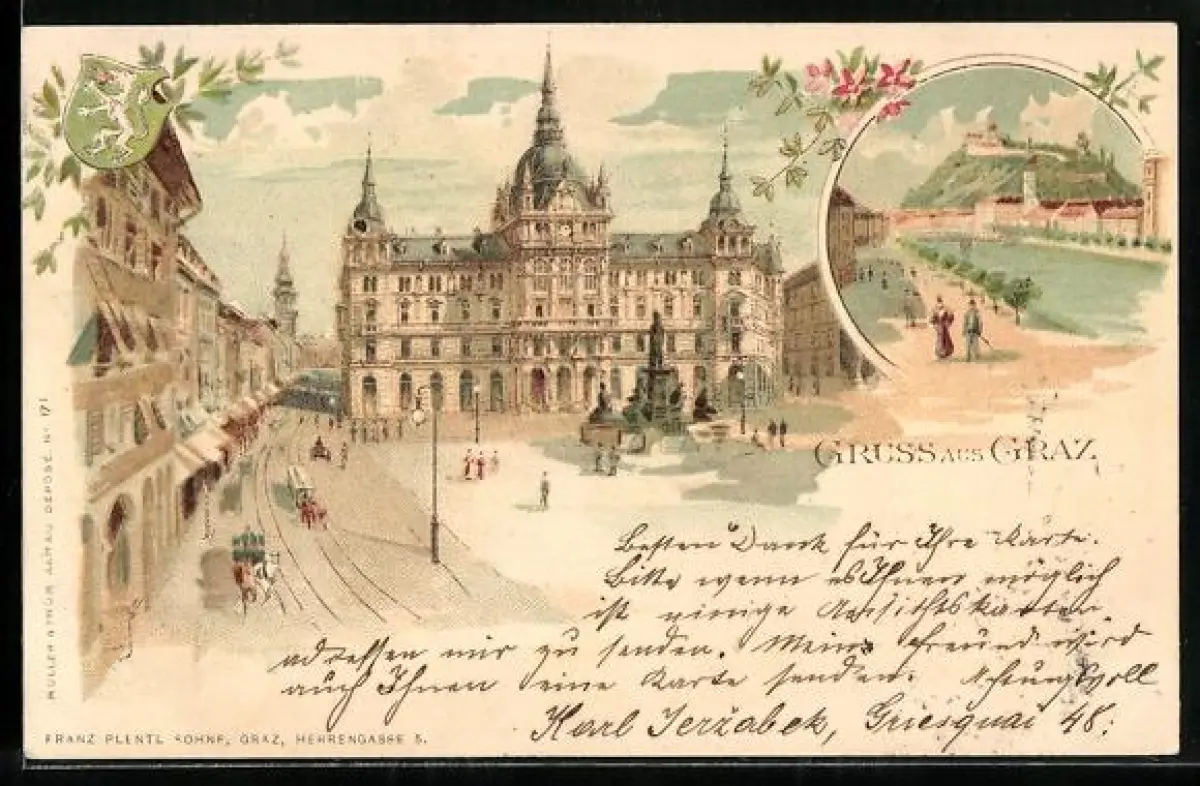 GRUSS AUS GRAZ
Besten Dank für Ihre Karte.
Bitte wenn es Ihnen möglich
ist einige Ansichtskarten
adressen mir zu senden. Meine Freund wird
auch Ihnen eine Karte senden. Achtungsvoll
Karl Jeržabek, Griesquai 48.
MÜLLER & TRÜB, AARAU. DEPOSE. No 171
FRANZ PLENTL SÖHNE, GRAZ, HERRENGASSE 5.